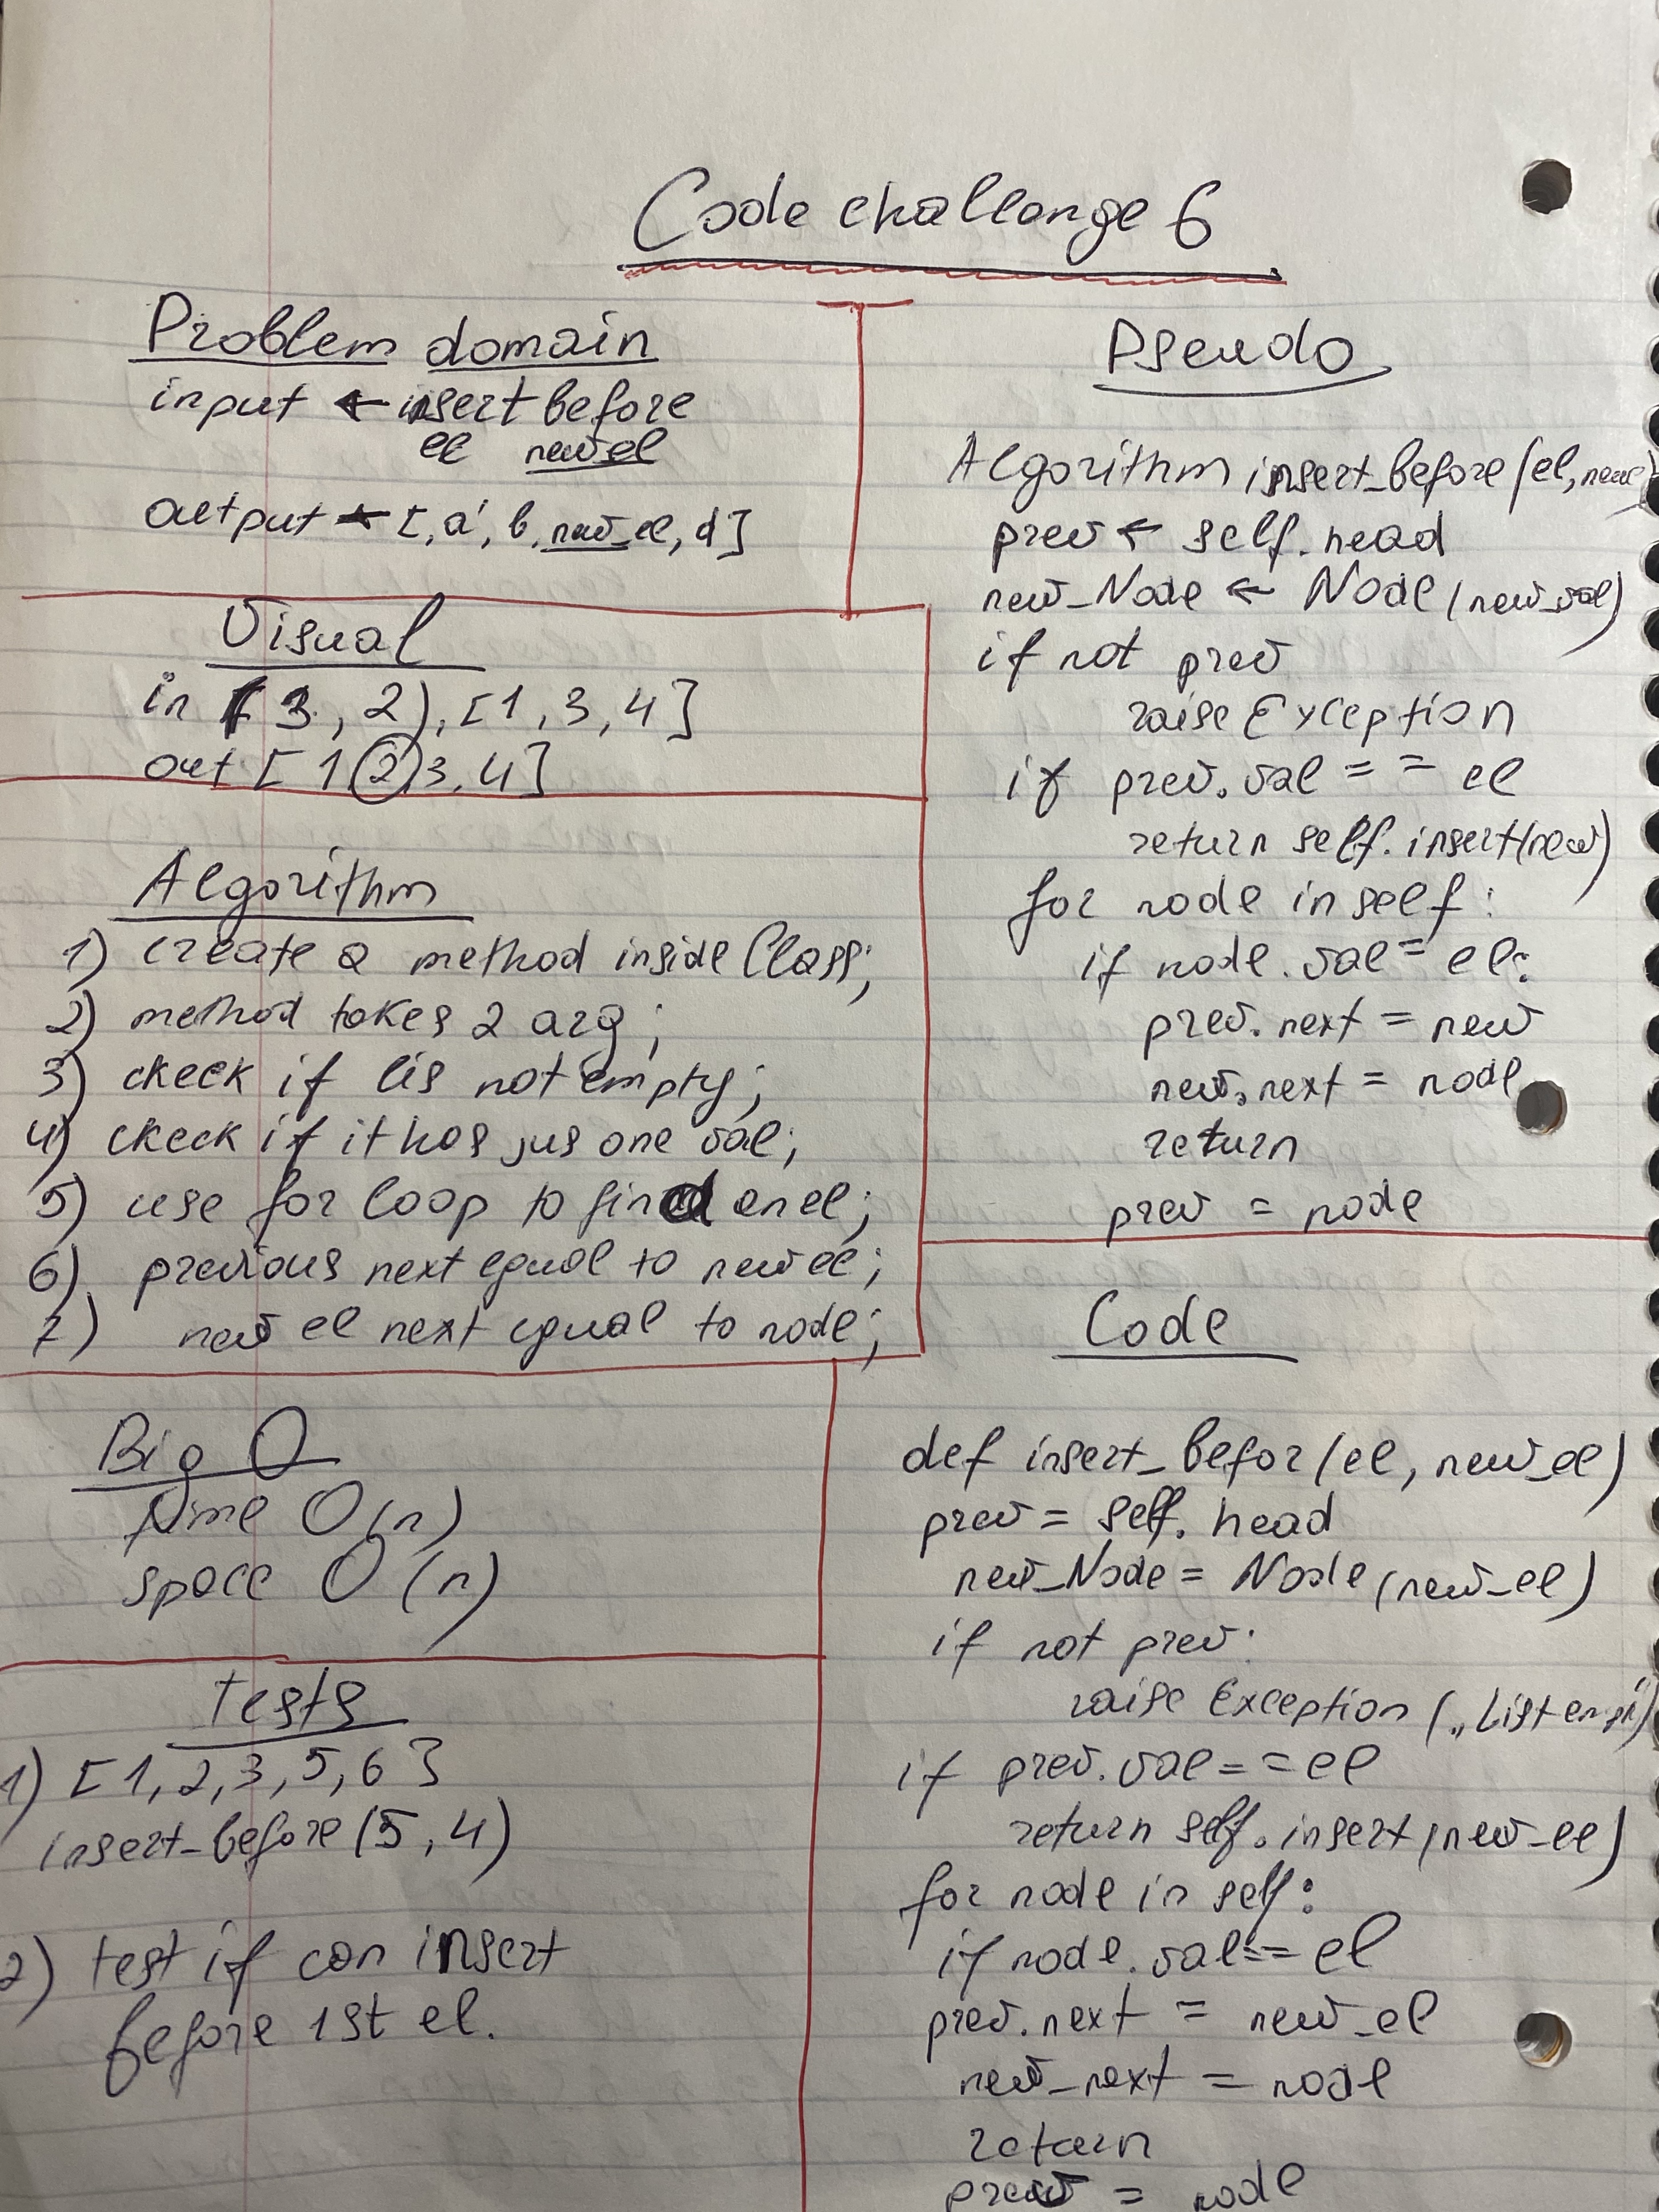 Code challenge 6
Problem domain
input ← insert before
el new el
output ← [, a', b, new_el, d]
Visual
in (3, 2), [1, 3, 4]
out [1 2 3, 4]
Algorithm
1) create a method inside Class;
2) method takes 2 arg;
3) ckeck if lis not empty;
4) ckeck if it has jus one val;
5) use for loop to find an el;
6) previous next equal to new el;
7) new el next equal to node;
Big O
time O(n)
space O(n)
Tests
1) [1, 2, 3, 5, 6]
insert_before(5, 4)
2) test if can insert
before 1st el.
Pseudo
Algorithm insert_before(el, new)
prev ← self.head
new_Node ← Node(new_val)
if not prev
raise Exception
if prev.val == el
return self.insert(new)
for node in self:
if node.val = el:
prev.next = new
new.next = node
return
prev = node
Code
def insert_befor(el, new_el)
prev = self.head
new_Node = Node(new_el)
if not prev:
raise Exception („List
if prev.val == el
return self.insert(new_el)
for node in self:
if node.val == el
prev.next = new_el
new_next = node
return
prev = node